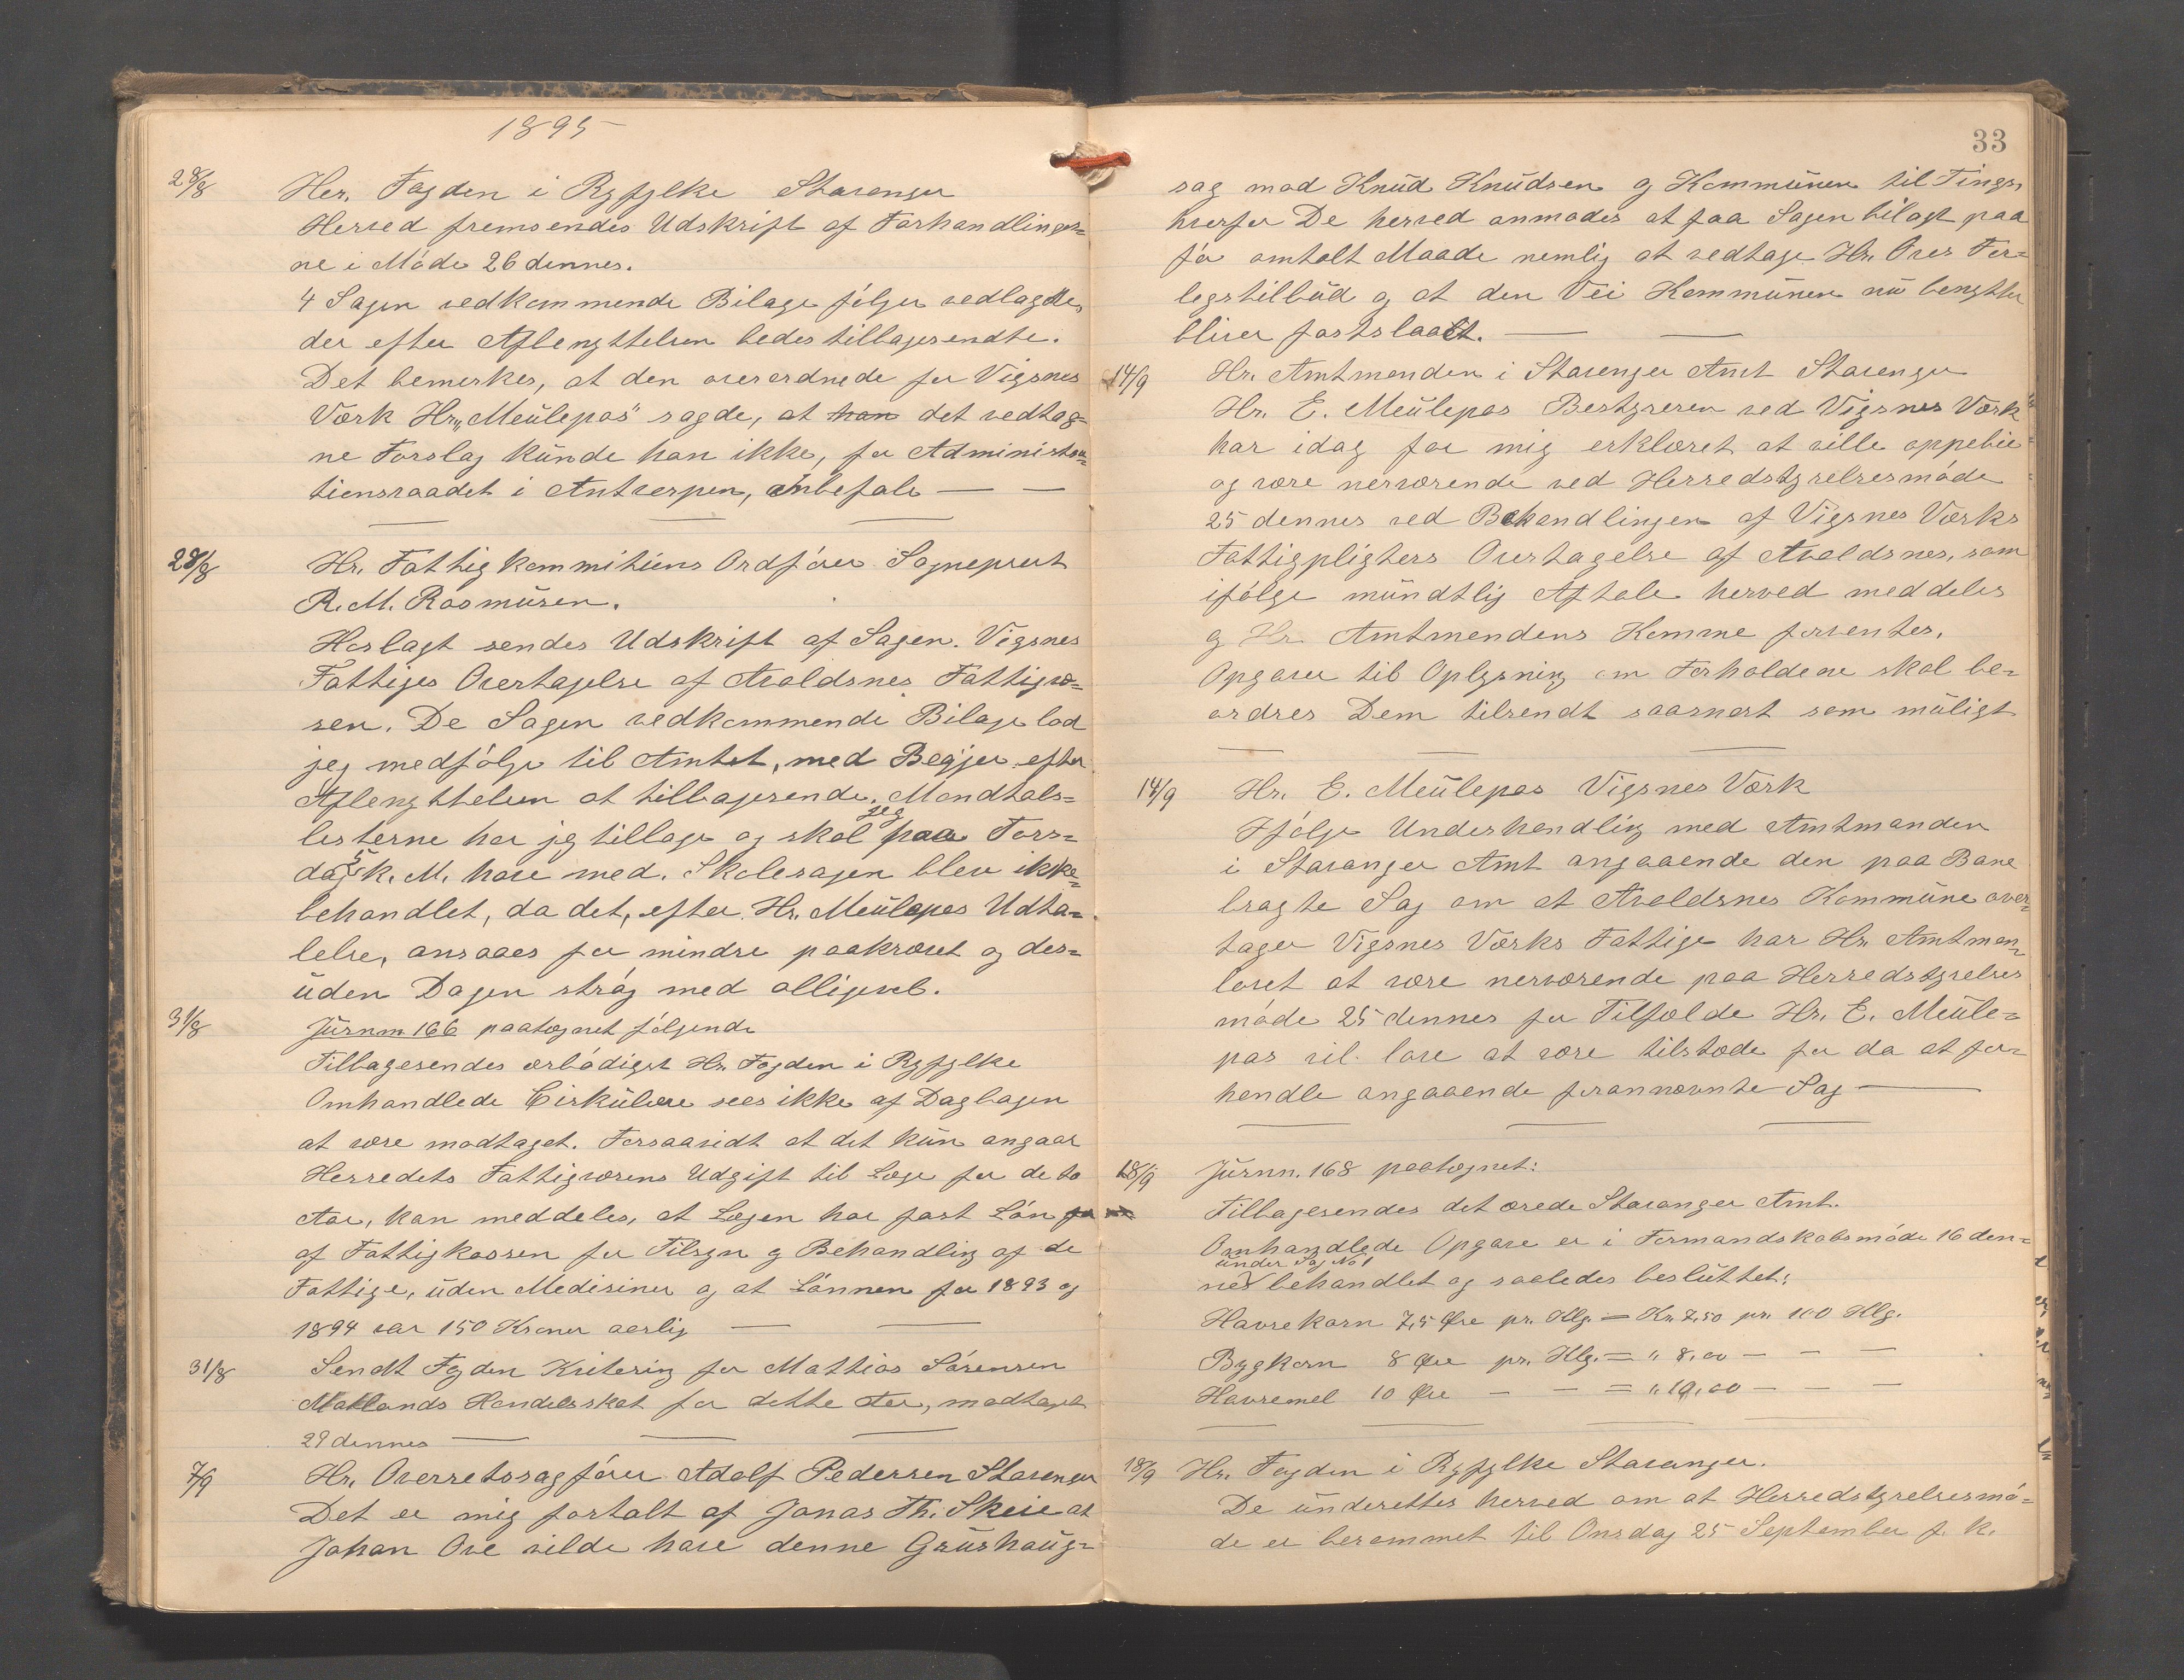 1895
28/8 Her. Fogden i Ryfylke Stavanger
Herved fremsendes Udskrift af Forhandlinger=
ne i Møde 26 dennes.
4 Sagen vedkommende Bilage følger vedlagdte,
der efter Afbenyttelsen bedes tilbagesendte.
Det bemerkes, at den overordnede for Vigsnes
Værk Hr. „Meülepas" sagde, at han det vedtag=
ne Forslag künde han ikke, for Administra=
tionsraadet i Antverpen, anbefale — —
28/8 Hr. Fattigkommitiens Ordfører Sogneprest
R. M. Rasmüsen.
Hoslagt sendes Udskrift af Sagen. Vigsnes
Fattiges Overtagelse af Avaldsnes Fattigvæ=
sen. De Sagen vedkommende Bilage lod
jeg medfølge til Amtet, med Begjer efter
Afbenyttelsen at tilbagesende. Mandtals=
listerne har jeg tilbage og skal jeg paa Tors=
dag k. M. have med. Skolesagen blev ikke
behandlet, da det, efter Hr. Meülepas Udta=
lelse, ansaaes for mindre paakrævet og des=
üden Dagen strøg med alligevel.
31/8 Jürnn 166 paategnet følgende
Tilbagesendes ærbødigst Hr. Fogden i Ryfylke
Omhandlede Cirkülære sees ikke af Dagbogen
at være modtaget. Forsaavidt at det kün angaar
Herredets Fattigvæsens Udgift til Læge for de to
Aar, kan meddeles, at Lægen har fast Løn
af Fattigkassen for Tilsyn og Behandling af de
Fattige, üden Medisiner og at Lønnen for 1893 og
1894 var 150 Kroner aarlig — —
31/8 Sendt Fogden Kvitering for Mathias Sørensen
Matlands Handelsskat for dette Aar, modtaget
29 dennes — — —
7/9 Hr. Overretssagfører Adolf Pedersen Stavanger
Det er mig fortalt af Jonas Th. Skeie at
Johan Ove vilde have denne Grüshaüg=
33
sag mod Knüd Knüdsen og Kommünen til Tings,
hvorfor De herved anmodes at faa Sagen bilagt paa
før omtalt Maade nemlig at vedtage Hr. Oves For=
legstilbüd og at den Vei Kommünen nü benytter
bliver fastslaaet. — —
14/9 Hr. Amtmanden i Stavanger Amt Stavanger
Hr. E. Meülepas Bestyreren ved Vigsnes Værk
har idag for mig erklæret at ville oppebie
og være nerværende ved Herredstyrelsesmøde
25 dennes ved Behandlingen af Vigsnes Værks
Fattigpligters Overtagelse af Avaldsnes, som
ifølge mündtlig Aftale herved meddeles
og Hr. Amtmandens Komme forventes.
Opgaver til Oplysning om Forholdene skal be=
ordres Dem tilsendt saasnart som müligt
14/9 Hr. E. Meülepas Vigsnes Værk
Ifølge Underhandling med Amtmanden
i Stavanger Amt angaaende den paa Bane
bragte Sag om at Avaldsnes Kommüne over=
tager Vigsnes Værks Fattige har Hr. Amtman,
lovet at være nerværende paa Herredstyrelses
møde 25 dennes for Tilfælde Hr. E. Meüle=
pas vil love at være tilstede for da at for=
handle angaaende forannævnte Sag —
18/9 Jürnn. 168 paategnet:
Tilbagesendes det ærede Stavanger Amt.
Omhandlede Opgave er i Formandskabsmøde 16 den=
under Sag No 1
nes behandlet og saaledes beslüttet:
Havrekorn 7,5 Øre pr. Klg. = Kr. 7,50 pr. 100 Klg.
Bygkorn 8 Øre pr. Klg. = „ 8,00 — — —
Havremel 10 Øre — — = „ 10,00 — — —
18/9 Hr. Fogden i Ryfylke Stavanger.
De ünderettes herved om at Herredstyrelsesmø=
de er berammet til Onsdag 25 September f. k.